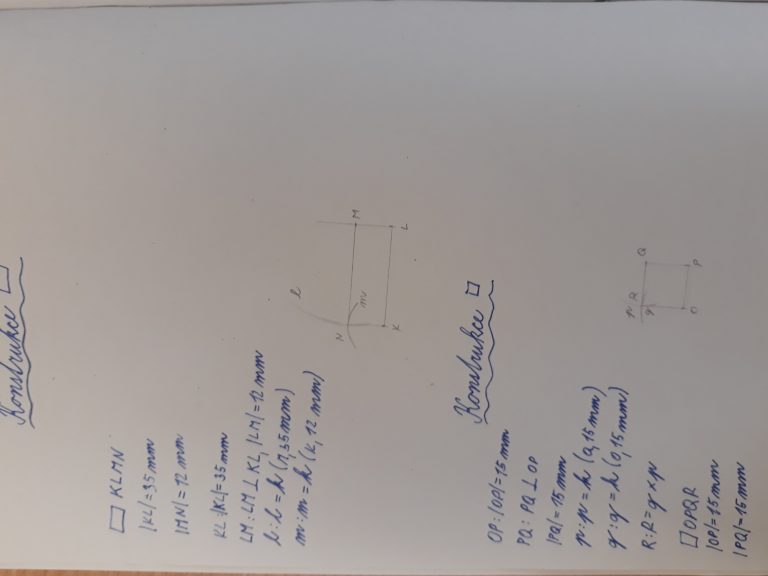 Konstrukce
KLMN
|KL|=35mm
|MN|=12 mm
KL:|KL|=35mm
LM: LM ⊥ KL, |LM|=12mm
l: l = k (M,35mm)
m: m = k (K, 12 mm)
l
N
m
M
K
L
Konstrukce
OP:|OP|=15mm
PQ: PQ ⊥ OP
|PQ|=15mm
p: p = k (Q,15mm)
q: q = k (O,15mm)
R: R = q × p
OPQR
|OP|=15mm
|PQ|=15mm
p
R
Q
q
O
P